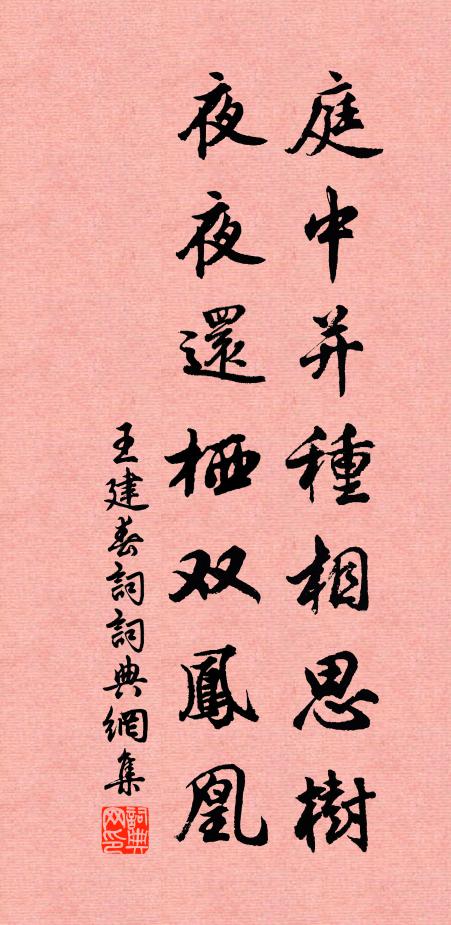 庭中并種相思樹
夜夜還栖双鳳凰
王建春詞詞典網集
詞典网印